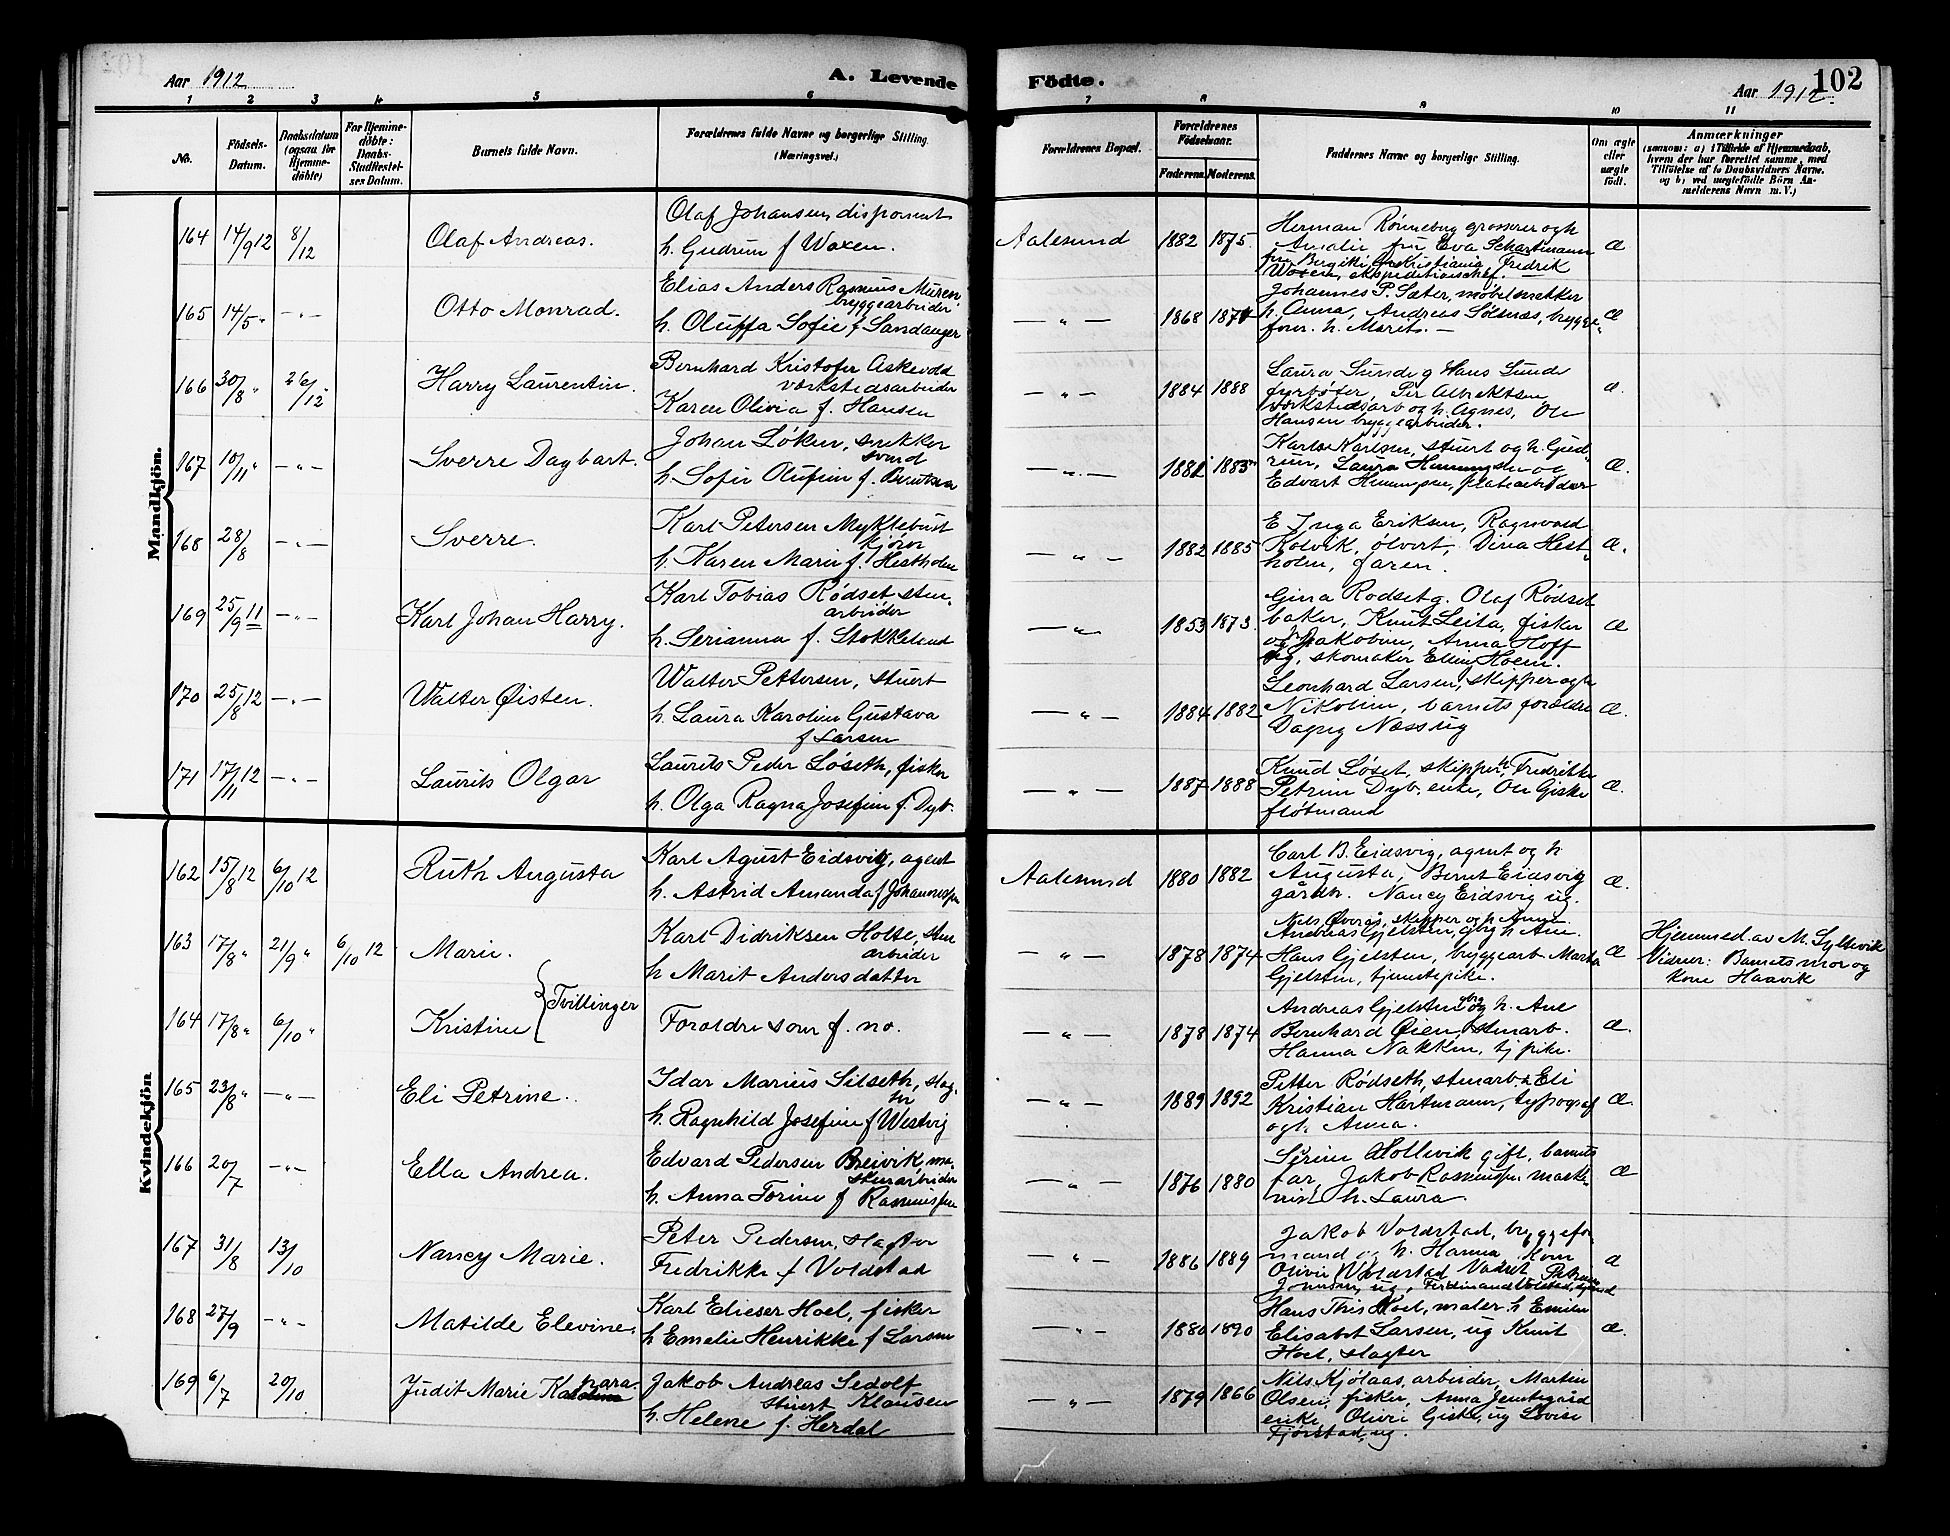 Aar 1912
A. Levende Födte.
Aar 1912
102
1 2 3 4 5 6 7 8 9 10 11
No.
Födsels-Datum.
Daabsdatum (ogsaa for Hjemme-döbte)
For Hjemme-döbte: Daabs-Stadfæstel-ses Datum.
Barnets fulde Navn.
Forældrenes fulde Navne og borgerlige Stilling. (Næringsvei.)
Forældrenes Bopæl.
Forældrenes Födselsaar.
Faderens. Moderens.
Faddernes Navne og borgerlige Stilling.
Om ægte eller uægte födt.
Anmærkninger
(saasom: a) i Tilfælde af Hjemmedaab, hvem der har forrettet samme, med Tilföielse af to Daabsvidners Navne, og b) ved uægtefödte Börn An-melderens Navn m. V.)
Mandkjön.
164 14/9 12 8/12 Olaf Andreas.
Olaf Johansen disponent
h. Gudrun f Waxen.
Aalesund 1882 1875.
Herman Rønneberg grosserer og h
Amalie fru Eva Schartmann
Kristiania, Fredrik
ekspeditionschef.
Æ
165 14/5 " — " — Otto Monrad.
Elias Anders Rasmus Muren
bryggearbeider
h. Oluffa Sofie f Sandanger
— " — 1868 1871
Johannes P. Sæter, møbelsnekker
h. Anna, Andreas Sølsnæs, brygge
form. h. Marit. —
Æ
166 30/8 " 26/12 " Harry Laurentin.
Bernhard Kristofer Askevold
verkstedsarbeider
Karen Olivia f. Hansen
— " — 1884 1888
Laura Sunde g Hans Sunde
fyrbøter, Per Albrektsen
verkstedsarb og h. Agnes, Ole
Hansen bryggearbeider.
Æ.
167 10/11 " — " — Sverre Dagbart.
Johan Løken, snekker
svend
h. Sofie Olufine f. Berntsen
— " — 1881 1885
Karl Karlsen, stuert og h. Gud-
run, Laura Henningsen og
Edvart Henningsen, platearbeider
Æ.
168 28/8 — " — Sverre.
Karl Petersen Myklebust
kjører
h. Karen Marie f. Hestholm
— " — 1882 1885
E Inga Eriksen, Ragnvald
Kolvik, ølvert, Dina Hest-
holm, faren.
Æ.
169 25/9 11 — " — Karl Johan Harry.
Karl Tobias Rødset sten-
arbeider
h. Serianna f. Stokkeland
— " — 1853 1873.
Gina Rødset g. Olaf Rødset
baker, Knut Leita, fisker
og h Jakobine, Anna Hoff
ug, skomaker Elling Hoem.
Æ
170 25/8 12 — " — Walter Øisten.
Walter Pettersen, stuert
h. Laura Karoline Gustava
f Larsen
— " — 1884 1882
Leonhard Larsen, skipper og h
Nikoline, barnets forældre
Dagny Næss ug
Æ.
171 17/11 12 — " — Laurits Olgar
Laurits Peder Løseth, fisker
h. Olga Ragna Josefine f. Dyb.
— " — 1887 1888
Knud Løset, skipper, Fredrikke
Petrine Dyb. enke, Ole Giske
fløtmand
Æ.
Kvindekjön
162 15/8 12 6/10 12 Ruth Augusta
Karl Agust Eidsvig, agent
h. Astrid Amanda f Johannessen
Aalesund 1880 1882
Carl B. Eidsvig, agent og h
Augusta, Bernt Eidsvig
gårdbr. Nancy Eidsvig ug.
Æ.
163 17/8 " 21/9 " 6/10 12 Marie.
Karl Didriksen Holte, sten
arbeider
h Marit Andersdatter
— " — 1878 1874
Nils Øveraas, skipper og h Anna.
Andreas Gjelsten, gbr h Ane.
Hans Gjelsten, bryggearb Marta
Gjelsten, tjenestepike.
Æ
Hjemmed. av M. Syltevik
Vidner: Barnets mor og
kone Haavik
{Tvillinger
164 17/8 " 6/10 " Kristine
Forældre som f. no.
— " — 1878 1874
Andreas Gjelsten gbr og h. Ane
Bernhard Øien, stenarb.
Hanna Nakken, tj pike.
Æ.
165 23/8 " — " — Eli Petrine.
Idar Marius Silseth, slag-
ter
h. Ragnhild Josefine f Westvig
— " — 1889 1892
Petter Rødseth, stenarb. & Eli
Kristian Hartmann, typograf
og h. Anna.
Æ.
166 20/7 — " — Ella Andrea.
Edvard Pedersen Breivik,
stenarbeider
h. Anna Torine f Rasmussen
— " — 1876 1880
Serine Hollevik gift, barnets
far, Jakob Rasmussen maski-
nist h. Laura.
Æ
167 31/8 13/10 Nancy Marie.
Peter Pedersen, slagter
Fredrikke f Voldstad
— " — 1886 1889
Jakob Voldstad, bryggefor-
mand og h. Hanna, kone
Olivie Voldstad
Johnsen, ug, Ferdinand Volstad,
Æ
168 27/9 — " — Matilde Elevine.
Karl Elieser Hoel, fisker
h Emelie Henrikke f Larsen
— " — 1880 1890
Hans This Hoel, maler h Emilie
Elisabet Larsen, ug Knut
Hoel, slagter
Æ.
169 6/7 20/10 Judit Marie Kapara.
Jakob Andreas Sedolf
stuert Klausen
h. Helene f. Herdal
— " — 1879 1866
Nils Kjølaas, arbeider, Martin
Olsen, fisker, Anna Jemtegård
enke, Olivie Giske, ug Lovise
Fjørstad, ug.